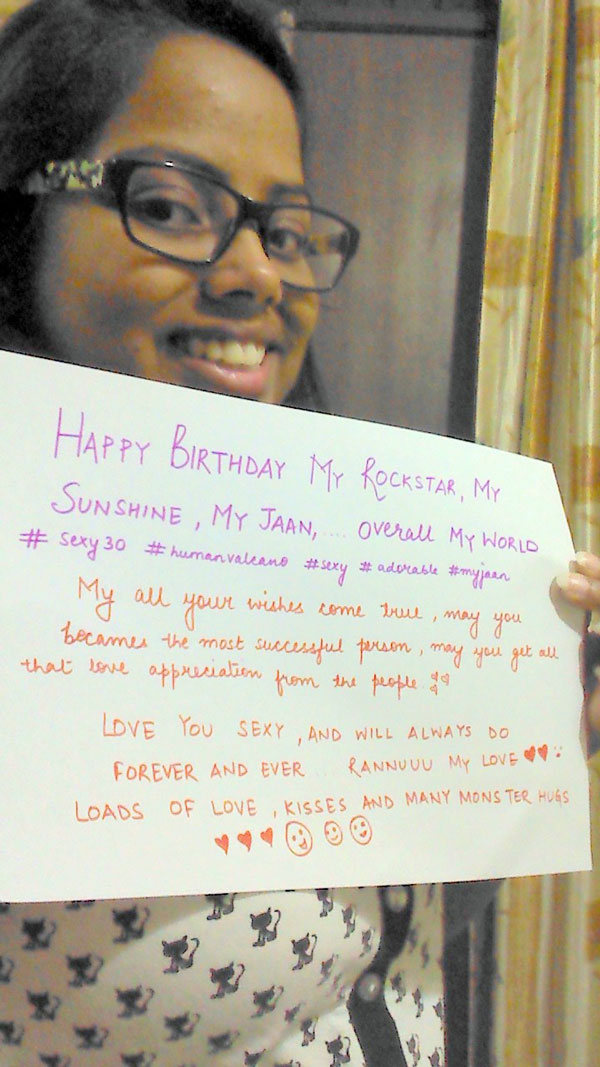 HAPPY BIRTHDAY MY ROCKSTAR, MY
SUNSHINE, MY JAAN, .... OVERALL MY WORLD
# sexy30 #humanvalcano #sexy #adorable #myjaan
My all your wishes come true, may you
becames the most successful person, may you get all
that love appreciation from the people
LOVE YOU SEXY, AND WILL ALWAYS DO
FOREVER AND EVER .... RANNUUU MY LOVE ♥♥
LOADS OF LOVE, KISSES AND MANY MONSTER HUGS
♥ ♥ ♥